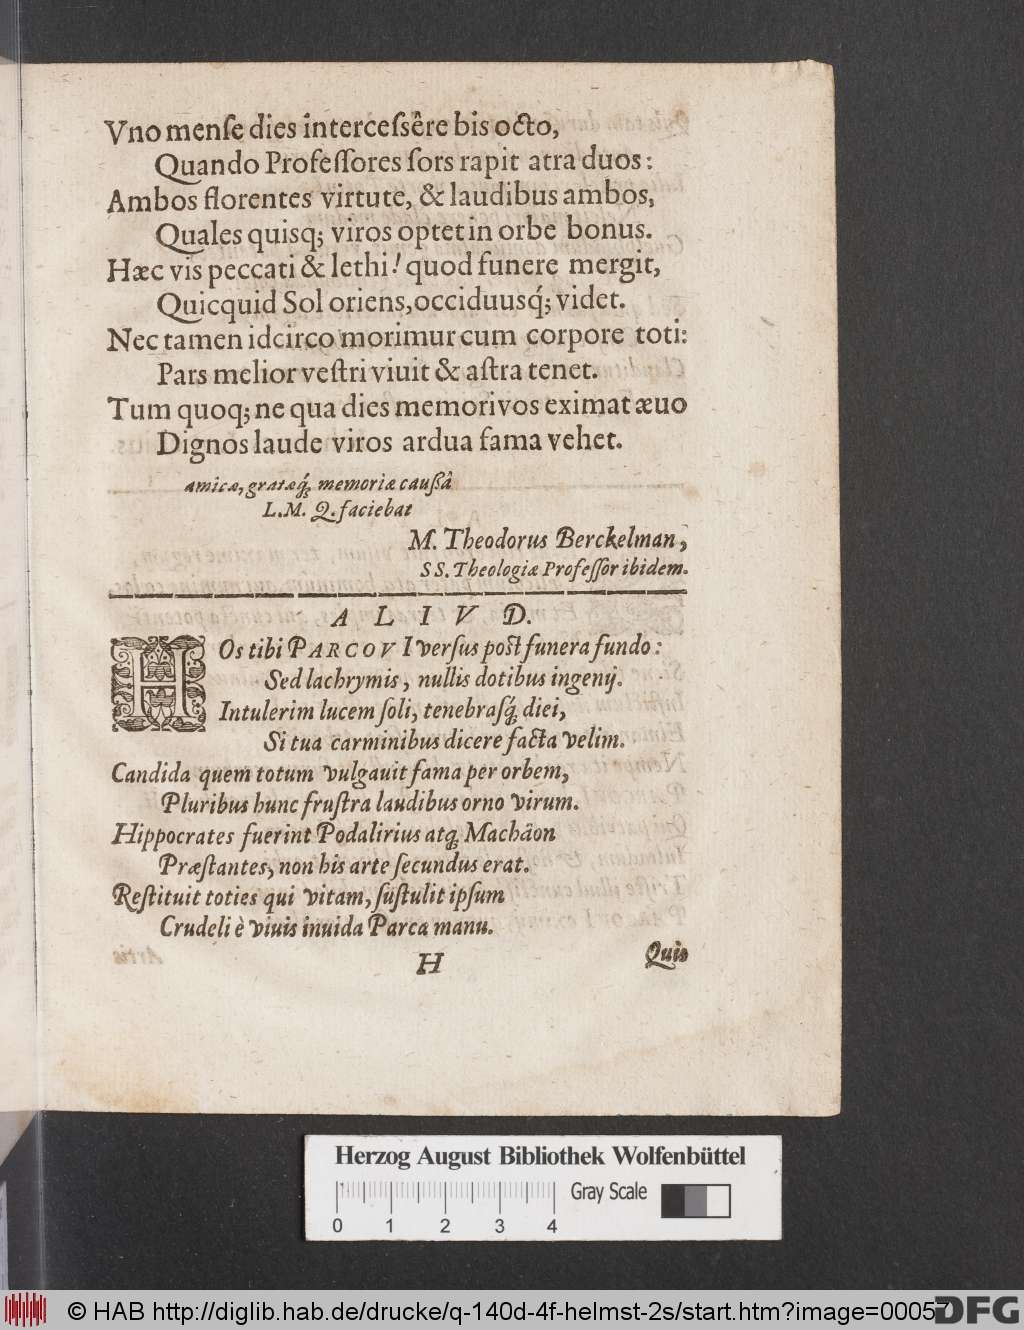 Vno menſe dies interceſsêre bis octo,
Quando Profeſſores ſors rapit atra duos:
Ambos florentes virtute, & laudibus ambos,
Quales quisq; viros optet in orbe bonus.
Hæc vis peccati & lethi! quod funere mergit,
Quicquid Sol oriens, occiduusq́; videt.
Nec tamen idcirco morimur cum corpore toti:
Pars melior veſtri viuit & aſtra tenet.
Tum quoq; ne qua dies memori vos eximat æuo
Dignos laude viros ardua fama vehet.
amicæ, gratæq́; memoriæ cauſsâ
L.M.Q. faciebat
M. Theodorus Berckelman,
SS. Theologiæ Profeſſor ibidem.
ALIVD.
HOs tibi PARCOVI verſus poſt funera fundo:
Sed lachrymis, nullis dotibus ingenij.
Intulerim lucem ſoli, tenebraſq́; diei,
Si tua carminibus dicere facta velim.
Candida quem totum vulgauit fama per orbem,
Pluribus hunc fruſtra laudibus orno virum.
Hippocrates fuerint Podalirius atq; Machâon
Præſtantes, non his arte ſecundus erat.
Reſtituit toties qui vitam, ſuſtulit ipſum
Crudeli è viuis inuida Parca manu.
H
Quis
Herzog August Bibliothek Wolfenbüttel
Gray Scale
0 1 2 3 4
© HAB http://diglib.hab.de/drucke/q-140d-4f-helmst-2s/start.htm?image=00057
DFG